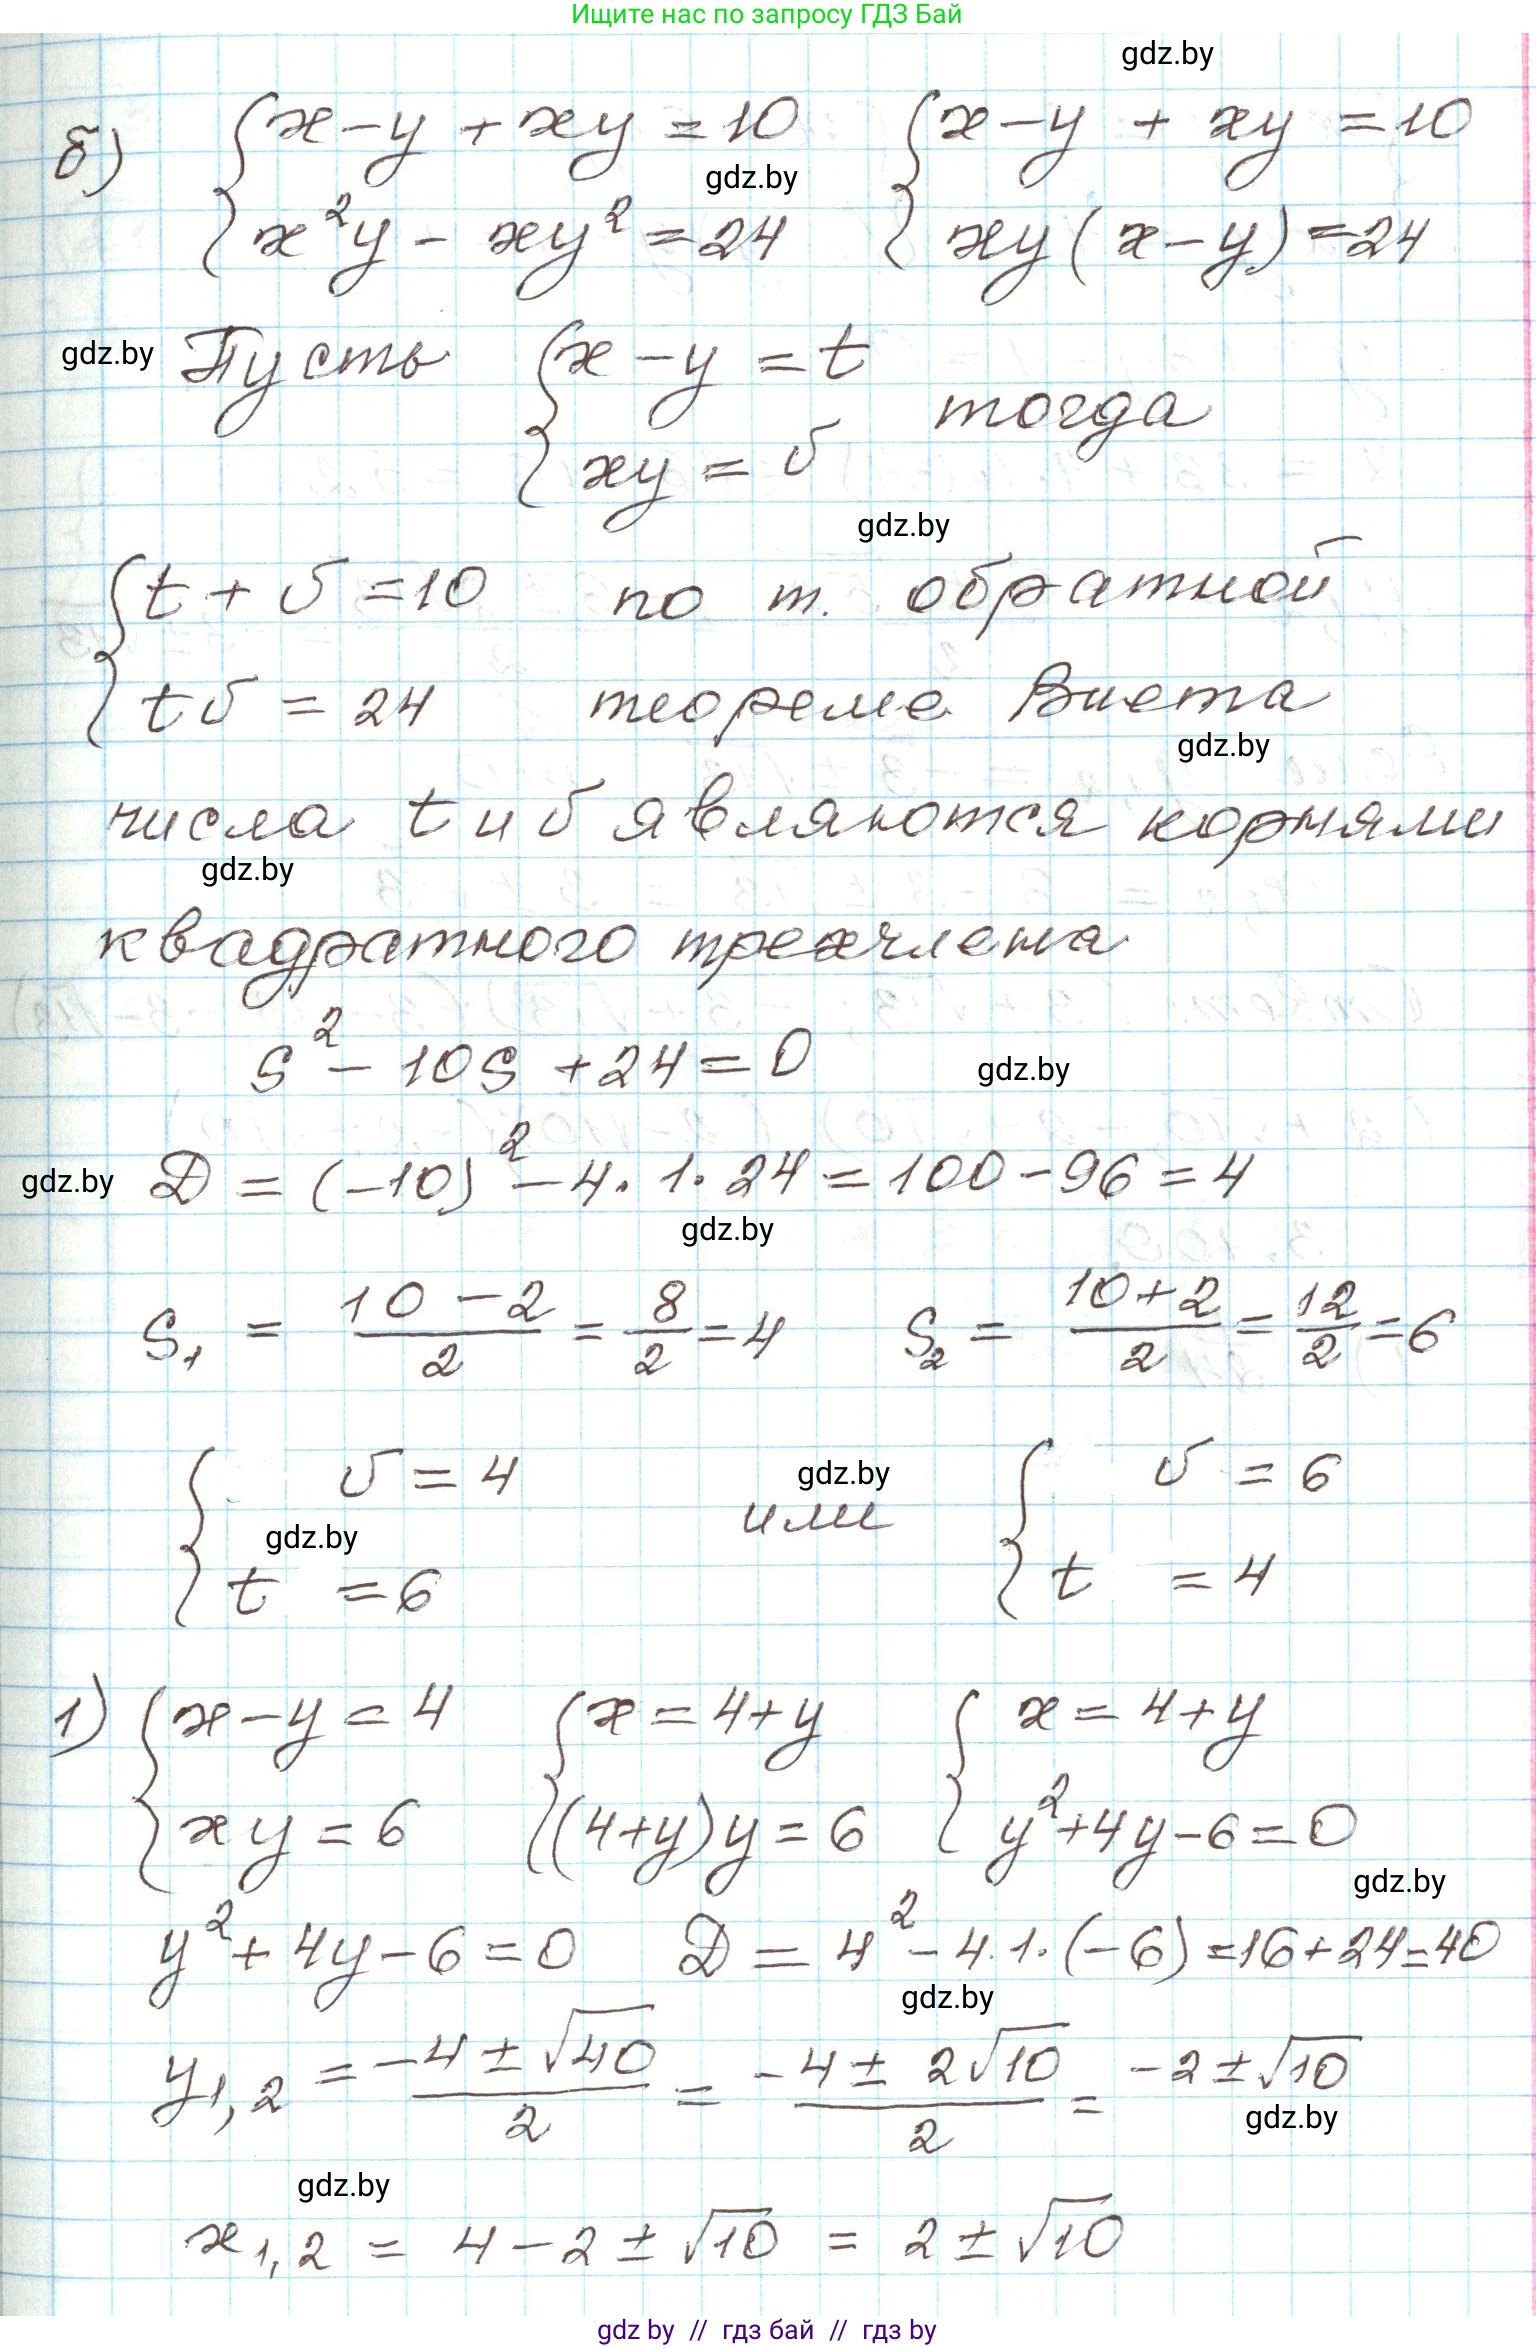 Ищите нас по запросу ГДЗ Бай
gdz.by
б) { x - y + xy = 10 { x - y + xy = 10
gdz.by
{ x² y - xy² = 24 { xy (x - y) = 24
gdz.by Пусть { x - y = t тогда
{ xy = v
gdz.by
{ t + v = 10 по т. обратной
{ t v = 24 теореме Виета
gdz.by
числа t и v являются корнями
gdz.by
квадратного трехчлена
S² - 10S + 24 = 0 gdz.by
gdz.by D = (-10)² - 4 · 1 · 24 = 100 - 96 = 4
gdz.by
S₁ = (10 - 2)/2 = 8/2 = 4 S₂ = (10 + 2)/2 = 12/2 = 6
{ v = 4 gdz.by { v = 6
gdz.by или
{ t = 6 { t = 4
1) { x - y = 4 { x = 4 + y { x = 4 + y
{ xy = 6 { (4 + y) y = 6 { y² + 4y - 6 = 0
gdz.by
y² + 4y - 6 = 0 D = 4² - 4 · 1 · (-6) = 16 + 24 = 40
gdz.by
y₁,₂ = (-4 ± √40)/2 = (-4 ± 2√10)/2 = -2 ± √10
gdz.by
gdz.by
x₁,₂ = 4 - 2 ± √10 = 2 ± √10
gdz by // гдз бай // гдз by